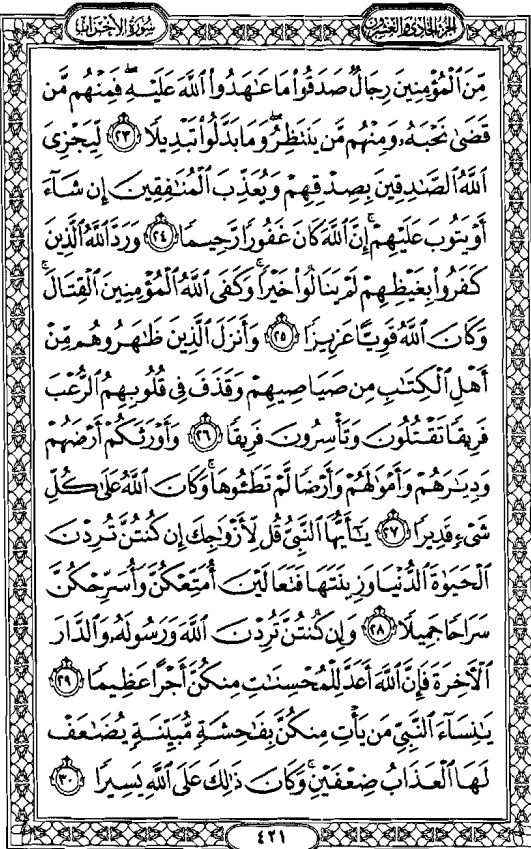 الجزء الحادي والعشرون
سورة الأحزاب
مِّنَ ٱلْمُؤْمِنِينَ رِجَالٌ صَدَقُوا۟ مَا عَٰهَدُوا۟ ٱللَّهَ عَلَيْهِ ۖ فَمِنْهُم مَّن
قَضَىٰ نَحْبَهُۥ وَمِنْهُم مَّن يَنتَظِرُ ۖ وَمَا بَدَّلُوا۟ تَبْدِيلًا ﴿٢٣﴾ لِّيَجْزِىَ
ٱللَّهُ ٱلصَّٰدِقِينَ بِصِدْقِهِمْ وَيُعَذِّبَ ٱلْمُنَٰفِقِينَ إِن شَآءَ
أَوْ يَتُوبَ عَلَيْهِمْ ۚ إِنَّ ٱللَّهَ كَانَ غَفُورًا رَّحِيمًا ﴿٢٤﴾ وَرَدَّ ٱللَّهُ ٱلَّذِينَ
كَفَرُوا۟ بِغَيْظِهِمْ لَمْ يَنَالُوا۟ خَيْرًا ۚ وَكَفَى ٱللَّهُ ٱلْمُؤْمِنِينَ ٱلْقِتَالَ ۚ
وَكَانَ ٱللَّهُ قَوِيًّا عَزِيزًا ﴿٢٥﴾ وَأَنزَلَ ٱلَّذِينَ ظَٰهَرُوهُم مِّنْ
أَهْلِ ٱلْكِتَٰبِ مِن صَيَاصِيهِمْ وَقَذَفَ فِى قُلُوبِهِمُ ٱلرُّعْبَ
فَرِيقًا تَقْتُلُونَ وَتَأْسِرُونَ فَرِيقًا ﴿٢٦﴾ وَأَوْرَثَكُمْ أَرْضَهُمْ
وَدِيَٰرَهُمْ وَأَمْوَٰلَهُمْ وَأَرْضًا لَّمْ تَطَـُٔوهَا ۚ وَكَانَ ٱللَّهُ عَلَىٰ كُلِّ
شَىْءٍ قَدِيرًا ﴿٢٧﴾ يَٰٓأَيُّهَا ٱلنَّبِىُّ قُل لِّأَزْوَٰجِكَ إِن كُنتُنَّ تُرِدْنَ
ٱلْحَيَوٰةَ ٱلدُّنْيَا وَزِينَتَهَا فَتَعَالَيْنَ أُمَتِّعْكُنَّ وَأُسَرِّحْكُنَّ
سَرَاحًا جَمِيلًا ﴿٢٨﴾ وَإِن كُنتُنَّ تُرِدْنَ ٱللَّهَ وَرَسُولَهُۥ وَٱلدَّارَ
ٱلْءَاخِرَةَ فَإِنَّ ٱللَّهَ أَعَدَّ لِلْمُحْسِنَٰتِ مِنكُنَّ أَجْرًا عَظِيمًا ﴿٢٩﴾
يَٰنِسَآءَ ٱلنَّبِىِّ مَن يَأْتِ مِنكُنَّ بِفَٰحِشَةٍ مُّبَيِّنَةٍ يُضَٰعَفْ
لَهَا ٱلْعَذَابُ ضِعْفَيْنِ ۚ وَكَانَ ذَٰلِكَ عَلَى ٱللَّهِ يَسِيرًا ﴿٣٠﴾
٤٢١